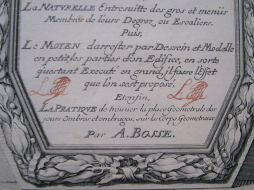 La Naturelle Entresuitte des gros et menus
Membres de leurs Degrez, ou Escaliers.
Puis,
Le Moyen d'arrester par Dessein et Modelle
en petit, les parties d'un Edifice, en sorte
qu'estant Executé en grand, il fasse l'effet
que l'on s'est proposé.
Et enfin,
La Pratique de trouver la place Geometrale des
jours Ombres et ombrages, sur les Corps Geometraux
Par A. Bosse.